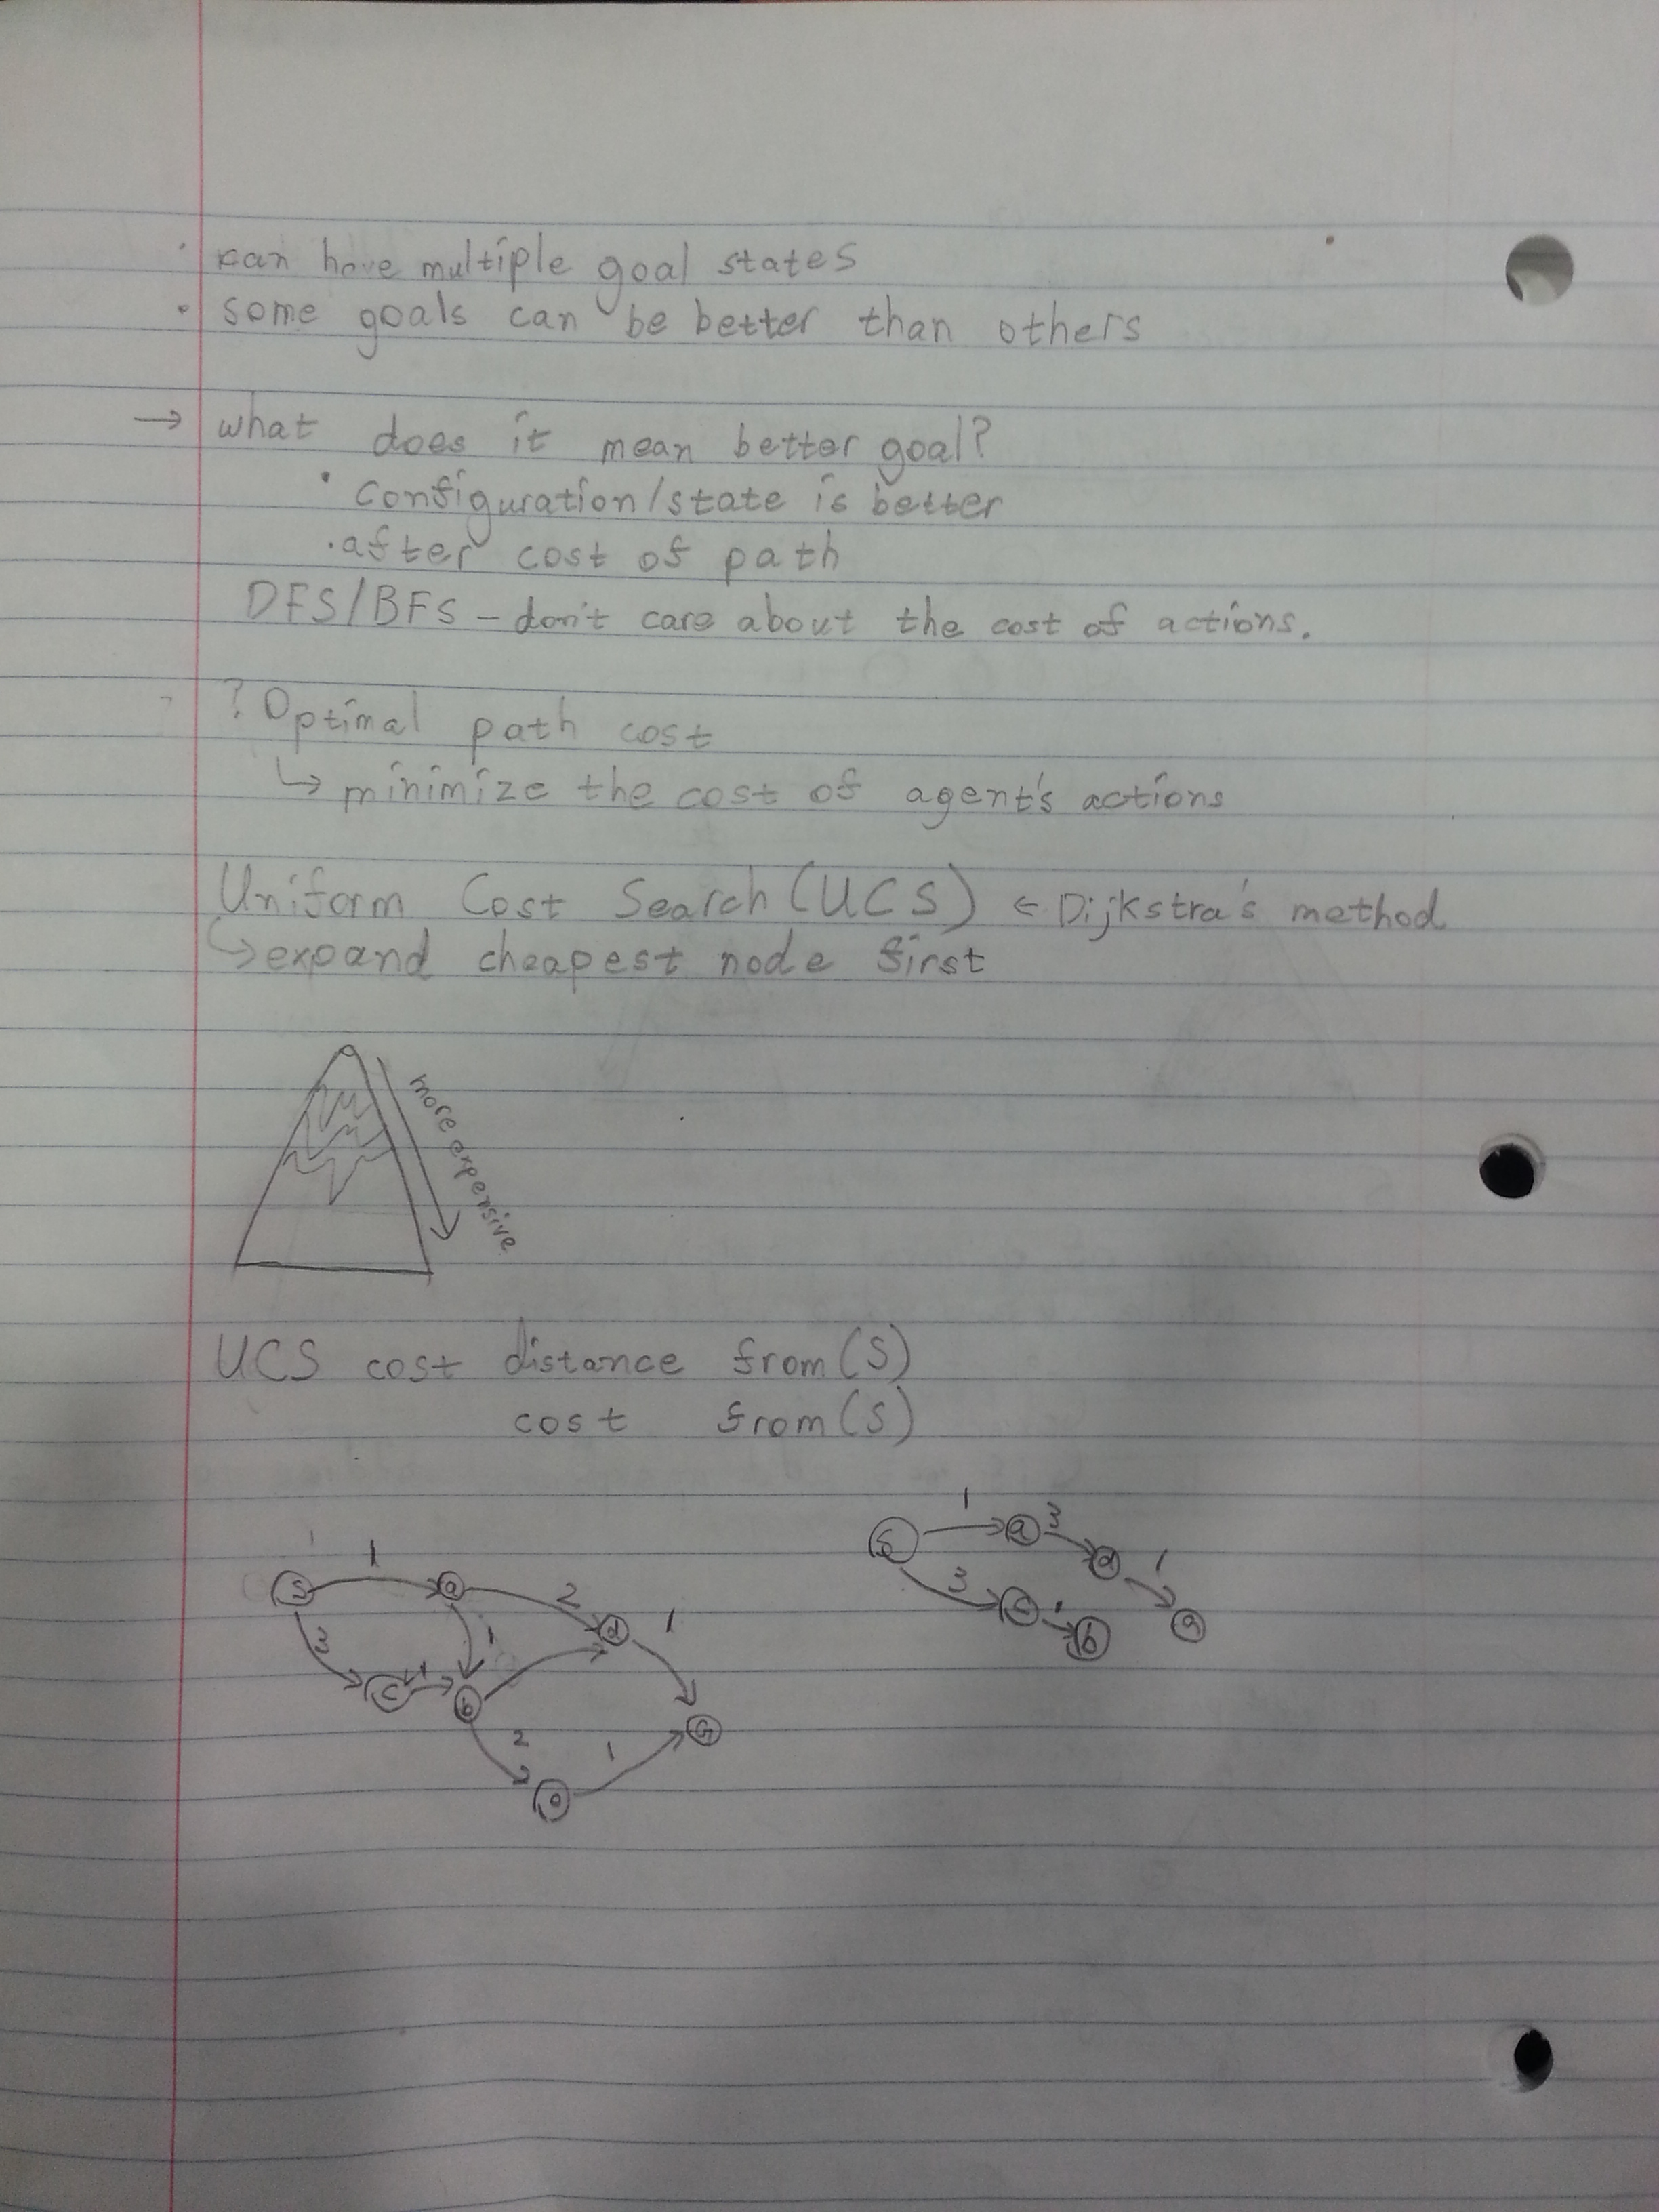 · can have multiple goal states
· some goals can be better than others
→ what does it mean better goal?
· configuration/state is better
· after cost of path
DFS/BFS – don't care about the cost of actions.
? Optimal path cost
↳ minimize the cost of agent's actions
Uniform Cost Search (UCS) ← Dijkstra's method
↳ expand cheapest node first
more expensive
UCS cost distance from (S)
cost from (S)
1
S 1 a 3 d 1 G
3 c b
S 1 a 2 d 1
3 c 1 b 1
2 1 G
e